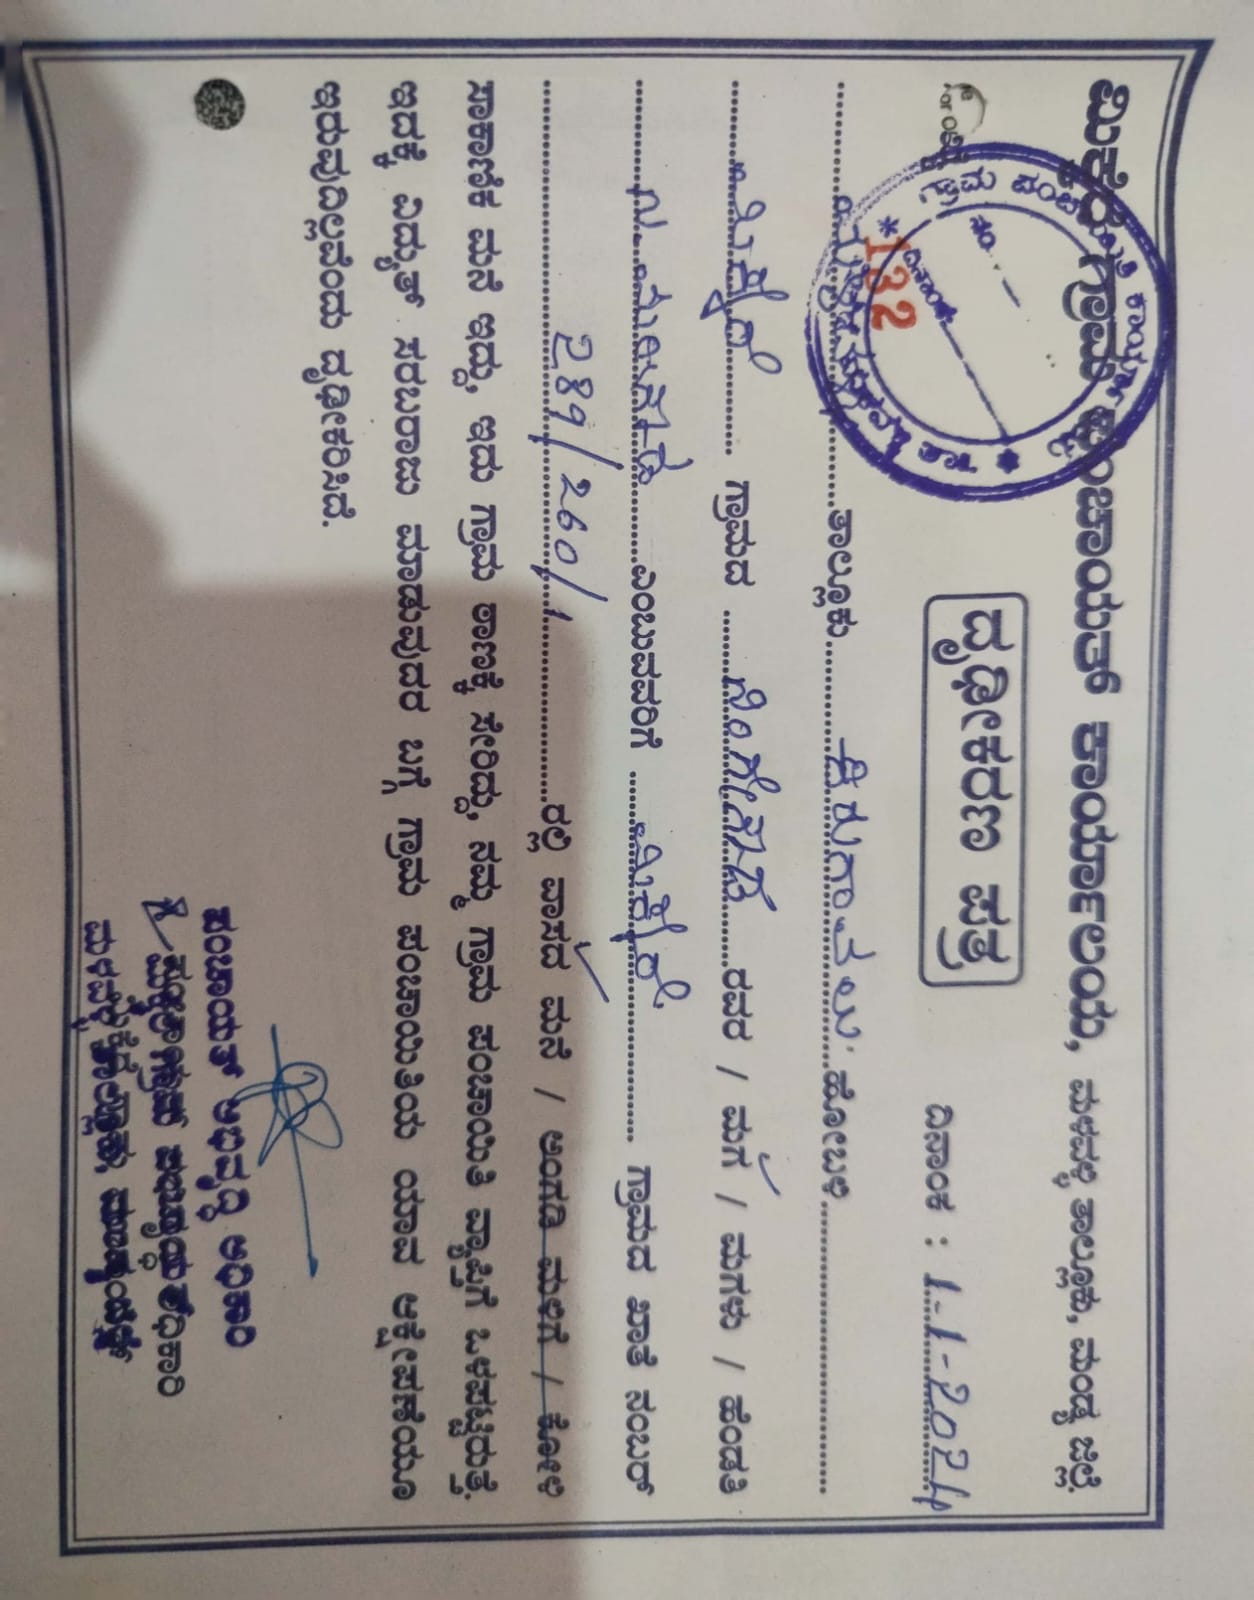 ಮಿಕ್ಕೆರೆ ಗ್ರಾಮ ಪಂಚಾಯತ್ ಕಾರ್ಯಾಲಯ, ಮಳವಳ್ಳಿ ತಾಲ್ಲೂಕು, ಮಂಡ್ಯ ಜಿಲ್ಲೆ.
132
ದೃಢೀಕರಣ ಪತ್ರ
ದಿನಾಂಕ : 1-1-2024
ತಾಲ್ಲೂಕು ಕಿರುಗಾವಲು ಹೋಬಳಿ
ಮಿಕ್ಕೆರೆ ಗ್ರಾಮದ ನಿಂಗೇಗೌಡ ರವರ / ಮಗ / ಮಗಳು / ಹೆಂಡತಿ
ಎಂಬುವವರಿಗೆ ಮಿಕ್ಕೆರೆ ಗ್ರಾಮದ ಖಾತೆ ನಂಬರ್
289/260/1 ರಲ್ಲಿ ವಾಸದ ಮನೆ / ಅಂಗಡಿ ಮಳಿಗೆ / ಕೋಳಿ
ಸಾಕಾಣಿಕೆ ಮನೆ ಇದ್ದು, ಇದು ಗ್ರಾಮ ಠಾಣಕ್ಕೆ ಸೇರಿದ್ದು, ನಮ್ಮ ಗ್ರಾಮ ಪಂಚಾಯಿತಿ ವ್ಯಾಪ್ತಿಗೆ ಒಳಪಟ್ಟಿರುತ್ತೆ.
ಇದಕ್ಕೆ ವಿದ್ಯುತ್ ಸರಬರಾಜು ಮಾಡುವುದರ ಬಗ್ಗೆ ಗ್ರಾಮ ಪಂಚಾಯಿತಿಯ ಯಾವ ಆಕ್ಷೇಪಣೆಯೂ
ಇರುವುದಿಲ್ಲವೆಂದು ದೃಢೀಕರಿಸಿದೆ.
ಪಂಚಾಯತ್ ಅಭಿವೃದ್ಧಿ ಅಧಿಕಾರಿ